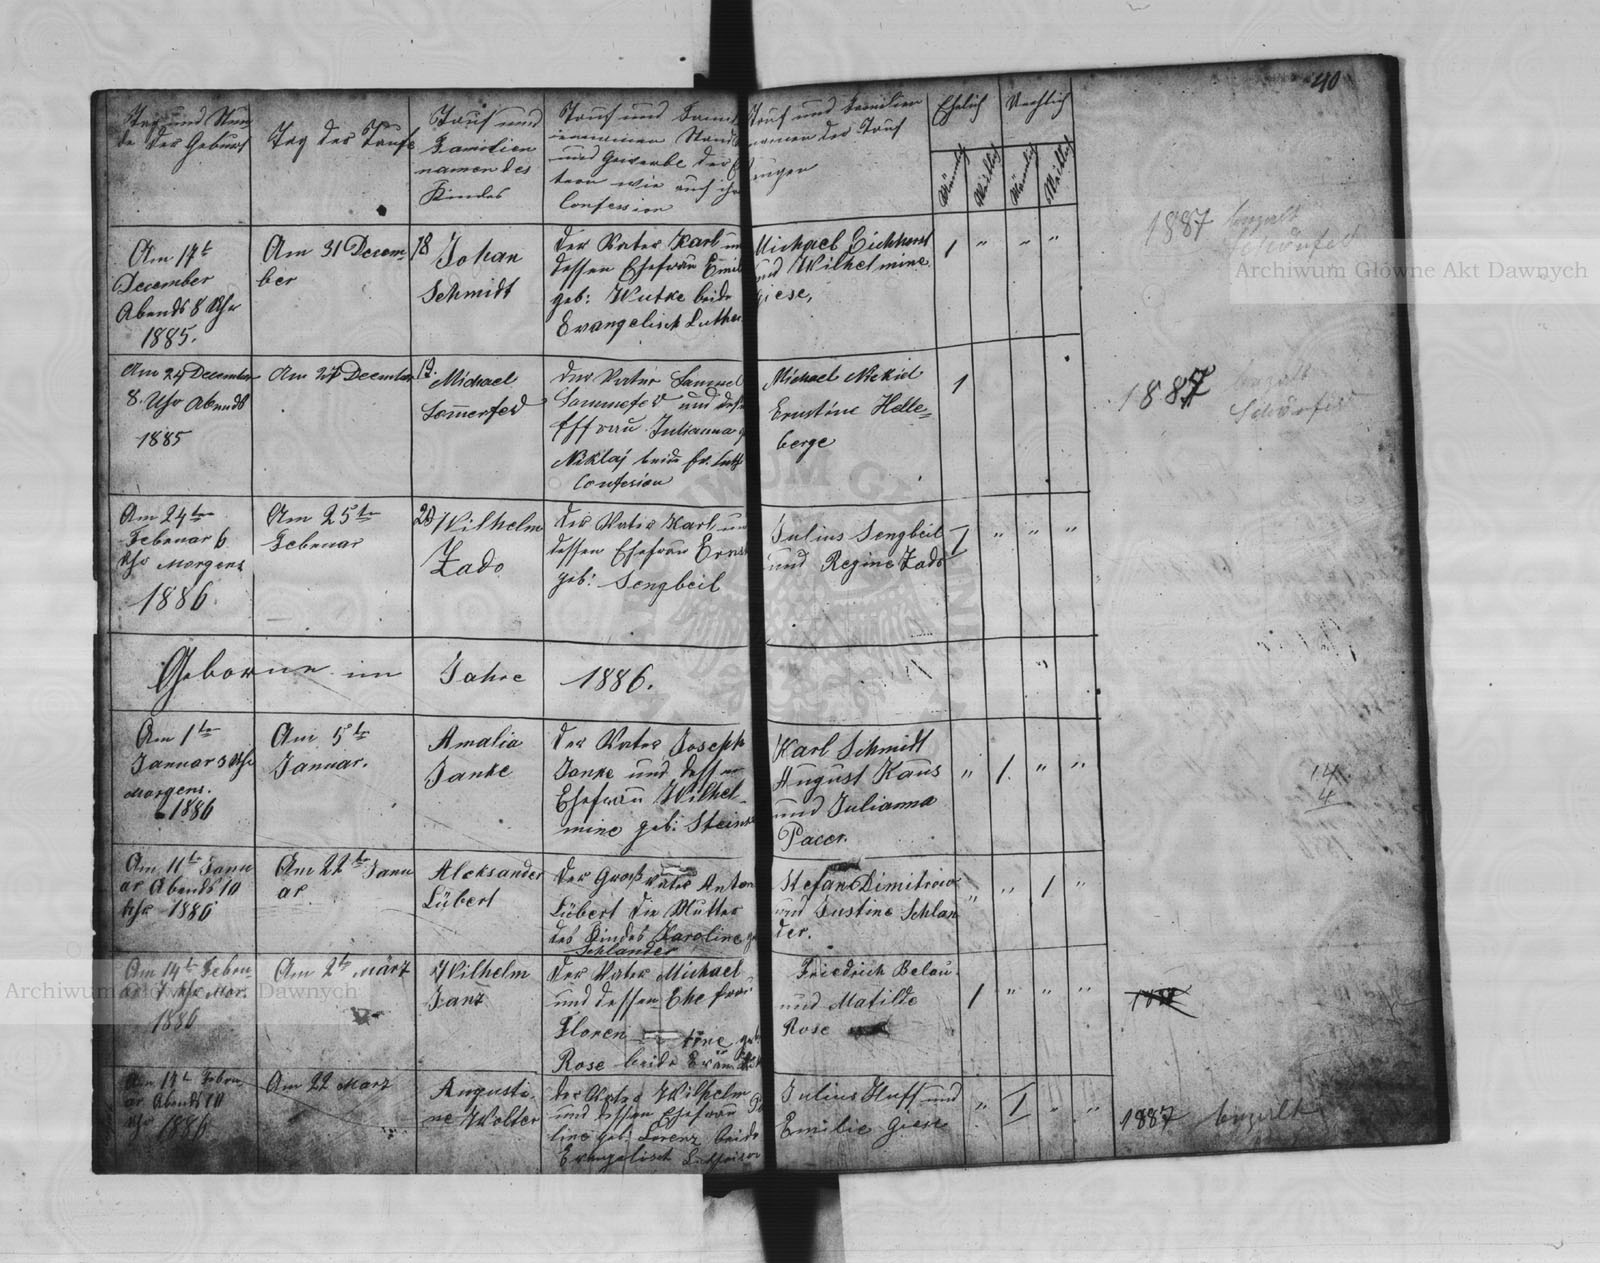 40
Tag und Stun
de der Geburt
Tag der Taufe
Tauf und
Familien
namen des
Kindes
Tauf und Fami
liennamen Stand
und Gewerbe der El
tern wie auch ihre
Confession
Tauf und Familien
namen der Tauf
zeugen
Ehelich
Unehlich
Männlich
Weiblich
Männlich
Weiblich
Am 17t
December
Abends 8 Uhr
1885.
Am 31 Decem-
ber
18 Johan
Schmidt
der Vater Karl un
dessen Ehefrau Emil
geb: Wutke beide
Evangelisch Luther
Michael Eichhorst
und Wilhelmine
Giese,
1 " " "
1887 bezalt
Am 24 December
8. Uhr Abends
1885
Am 27 December
19. Michael
Somerfeld
der Vater Samuel
Sommefeld und dess
Effrau Julianna g
Niklaj beide Ev. Luth
Confesion
Michael Nickid
Ernstine Helle=
berge
1
1887 bezalt
Am 24ten
Februar 6
Uhr Morgens
1886.
Am 25ten
Februar
20 Wilhelm
Zado
der Vater Karl un
dessen Ehefrau Ernst
geb: Sengbeil
Julius Sengbeil
und Regine Zado
1 " " "
Geborne im Jahre 1886.
Am 1ten
Januar 3 Uhr
Morgens.
1886
Am 5te
Januar.
Amalia
Janke
der Vater Joseph
Janke und dessen
Ehefrau Wilhel-
mine geb: Steink
Karl Schmidt
August Kaus
und Julianna
Pacer.
" 1. " "
14
4
Am 11te Janu
ar Abends 10
Uhr 1886
Am 22te Janu
ar
Aleksander
Lübert
der Groß Vater Anton
Lübert die Mutter
des Kindes Karoline g
Schlander
Stefan Dimitrow
und Justine Schlan
der.
" " 1 "
Am 14t Febru
ar 7 Uhr Mor.
1886
Am 2te März
Wilhelm
Janz
der Vater Michael
und dessen Ehe frau
Floren tine geb
Rose beide
Friedrich Belau
und Matilde
Rose
1 " " "
Am 17t Febru
ar Abends 10
Uhr 1886
Am 22 März
Augusti
ne Wolter
der Vater Wilhelm
und dessen Ehefrau
line geb: Lorenz beide
Evangelisch
Julius Huff und
Emilie Giese
" 1 " "
1887 bezalt
Archiwum Główne Akt Dawnych
Archiwum Główne Akt Dawnych